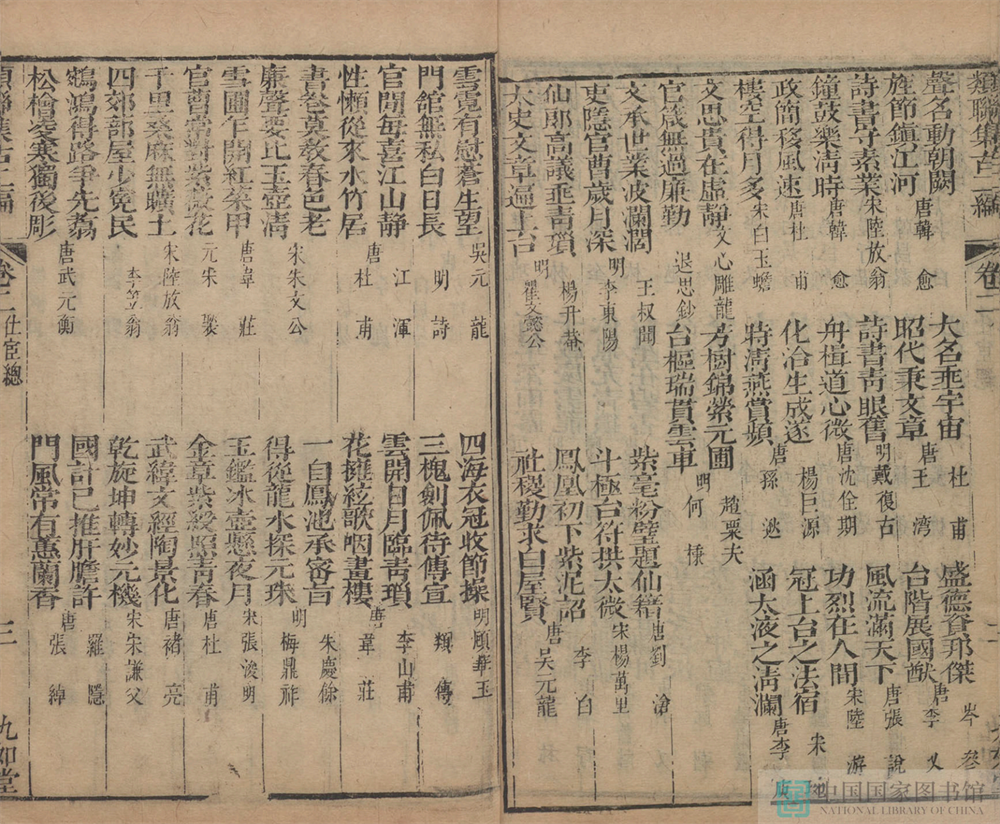 類聯集古二編 卷二
聲名動朝闕 唐韓愈 大名垂宇宙 杜甫 盛德資邦傑 岑參
旌節鎮江河 唐韓愈 昭代秉文章 唐王灣 台階展國猷 唐李乂
詩書守素業 宋陸放翁 詩書青眼舊 明戴復古 風流滿天下 唐張說
鐘鼓樂清時 唐韓愈 舟楫道心微 唐沈佺期 功烈在人間 宋陸游
政簡移風速 唐杜甫 化洽生成遂 楊巨源 冠上台之法宿 宋祁
樓空得月多 宋白玉蟾 時清燕賞頻 唐孫逖 涵太液之清瀾 唐李庾
文思貴在虛靜 文心雕龍 芳樹錦縈元圃 趙栗夫
官箴無過廉勤 退思鈔 台樞瑞貫雲車 明何棟
文承世業波瀾闊 王叔聞 紫毫粉壁題仙籍 唐劉滄
吏隱官曹歲月深 明李東陽 斗極台符拱太微 宋楊萬里
仙郎高議垂青瑣 楊升菴 鳳凰初下紫泥詔 李白
太史文章遍上台 明瞿文懿公 社稷勤求白屋賢 唐吳元龍
雲霓有慰蒼生望 吳元龍 四海衣冠收節操 明顧華玉
門館無私白日長 明詩 三槐劍佩待傳宣 賴傳
官閒每喜江山靜 江渾 雲開日月臨青瑣 李山甫
性懶從來水竹居 唐杜甫 花擁絃歌咽畫樓 唐韋莊
書卷莫教春色老 宋朱文公 一自鳳池承密旨 朱慶餘
廉聲要比玉壺清 得從龍水探元珠 明梅鼎祚
雪圃乍開紅菜甲 唐韋莊 玉鑑冰壺懸夜月 宋張浚明
官曹常對紫薇花 元宋褧 金章紫綬照青春 唐杜甫
千里桑麻無曠土 宋陸放翁 武緯文經陶景化 唐褚亮
四郊部屋少冤民 李笠翁 乾旋坤轉妙元機 宋宋謙父
鵷鴻得路爭先翥 唐武元衡 國計已推肝膽許 羅隱
松檜凌寒獨後彫 門風常有蕙蘭香 唐張綽
類聯集古二編 卷二 仕宦總 三 九如堂
中国国家图书馆
NATIONAL LIBRARY OF CHINA